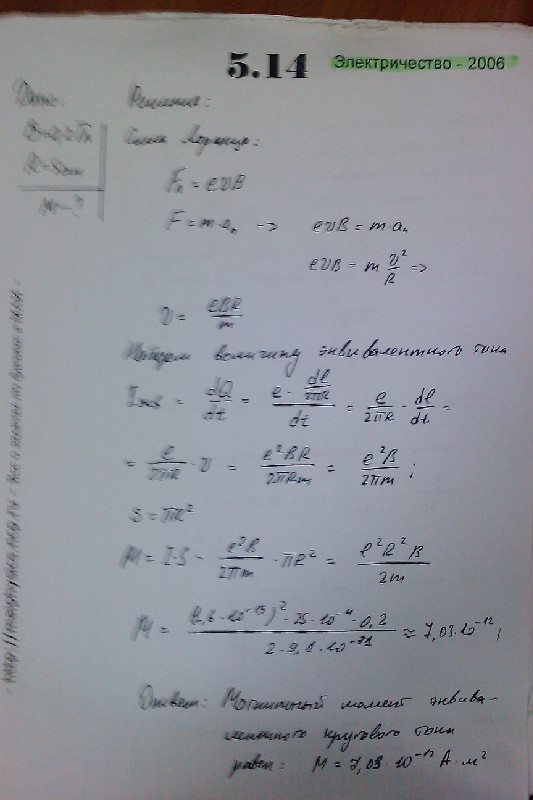 5.14 Электричество - 2006
Дано: Решение:
B=0,2 Тл Сила Лоренца:
R=5см
M-?
Fл = evB
F = m·aₙ -> evB = m·aₙ
evB = m v²/R =>
v = eBR/m
Найдем величину эквивалентного тока
Iэкв = dQ/dt = e · dl/2πR / dt = e/2πR · dl/dt =
= e/2πR · v = e²BR/2πRm = e²B/2πm ;
S = πR²
M = I·S = e²B/2πm · πR² = e²R²B/2m
M = (1,6·10⁻¹⁹)²·25·10⁻⁴·0,2 / 2·9,1·10⁻³¹ ≈ 7,03·10⁻¹² ;
Ответ: Магнитный момент эквива-
лентного кругового тока
равен: M = 7,03·10⁻¹² А·м²